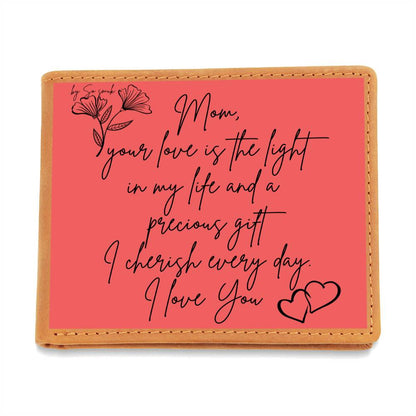 Mom,
your love is the light
in my life and a
precious gift
I cherish every day.
I love You